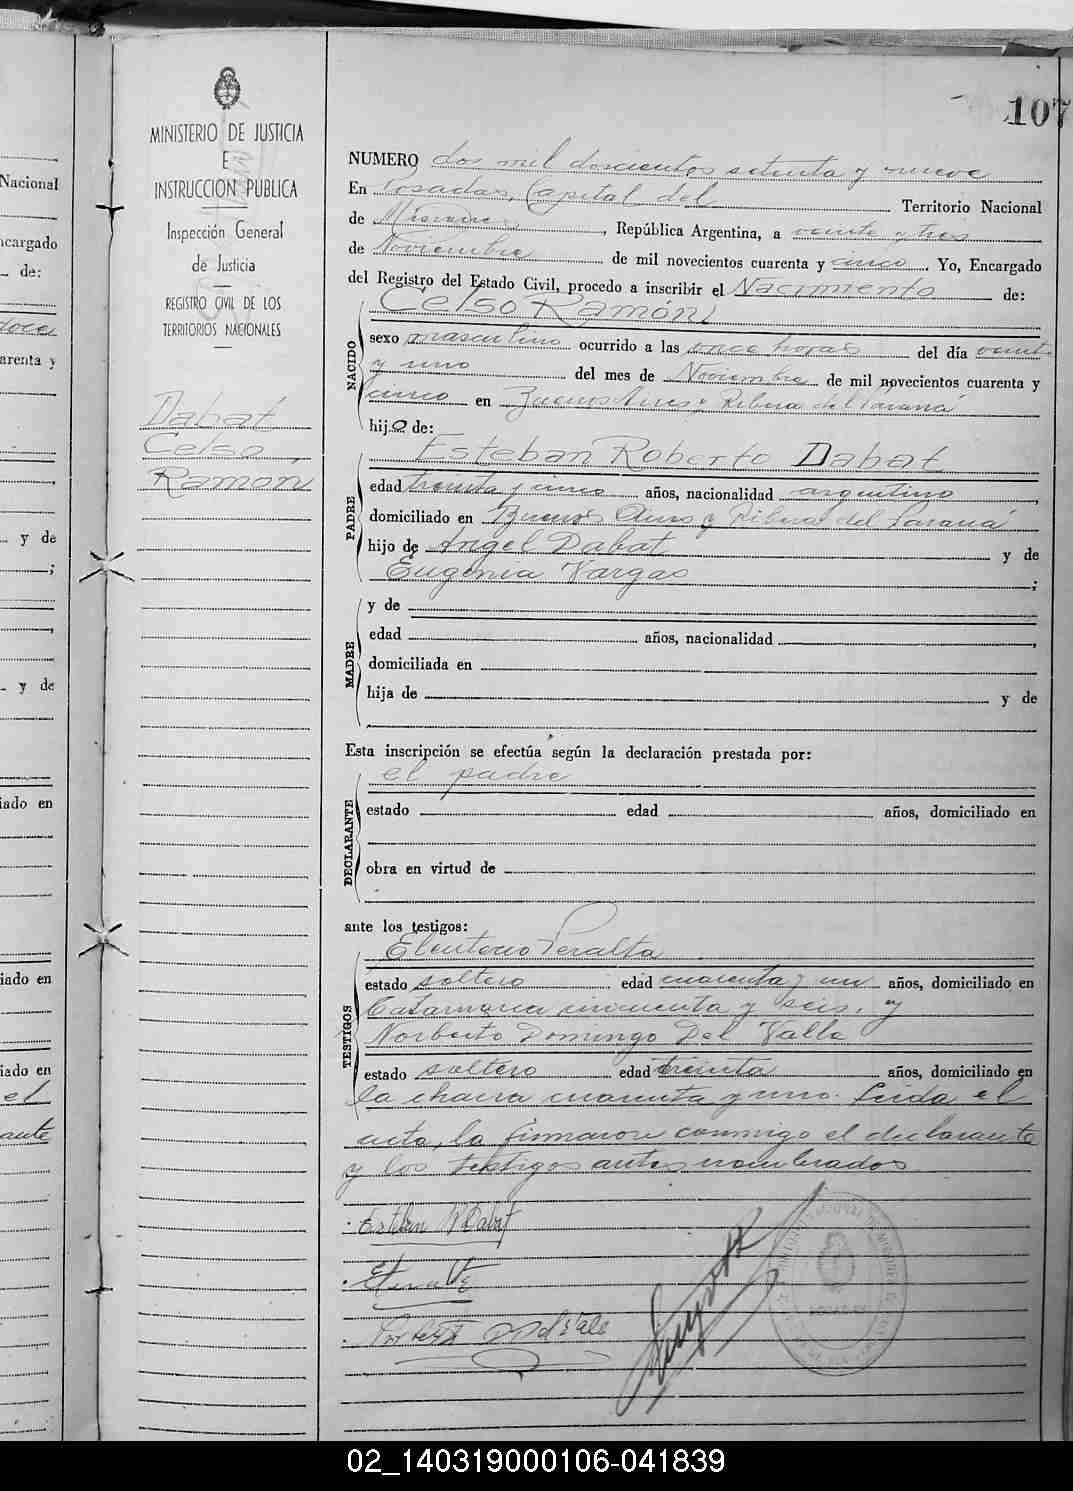 107
MINISTERIO DE JUSTICIA
E
INSTRUCCION PUBLICA
Inspección General
de Justicia
REGISTRO CIVIL DE LOS
TERRITORIOS NACIONALES
Dabat
Celso
Ramón
NUMERO dos mil doscientos setenta y nueve
En Posadas, Capital del Territorio Nacional
de Misiones, República Argentina, a veinte y tres
de Noviembre de mil novecientos cuarenta y cinco. Yo, Encargado
del Registro del Estado Civil, procedo a inscribir el Nacimiento de:
NACIDO
Celso Ramón
sexo masculino ocurrido a las once horas del día veinte
y uno del mes de Noviembre de mil novecientos cuarenta y
cinco en Buenos Aires y Ribera del Paraná
hijo de:
PADRE
Esteban Roberto Dabat
edad treinta y cinco años, nacionalidad argentino,
domiciliado en Buenos Aires y Ribera del Paraná
hijo de Angel Dabat y de
Eugenia Vargas;
MADRE
y de
edad años, nacionalidad,
domiciliada en
hija de y de
Esta inscripción se efectúa según la declaración prestada por:
DECLARANTE
el padre
estado edad años, domiciliado en
obra en virtud de
ante los testigos:
TESTIGOS
Eleuterio Peralta
estado soltero edad cuarenta y un años, domiciliado en
Catamarca cincuenta y seis, y
Norberto Domingo Del Valle
estado soltero edad treinta años, domiciliado en
la chacra cuarenta y uno. Leida el
acta, la firmaron conmigo el declarante
y los testigos antes nombrados
Esteban R Dabat
Nacional
encargado
de:
arenta y
y de
;
,
y de
iado en
iado en
iado en
el
ante
02_140319000106-041839